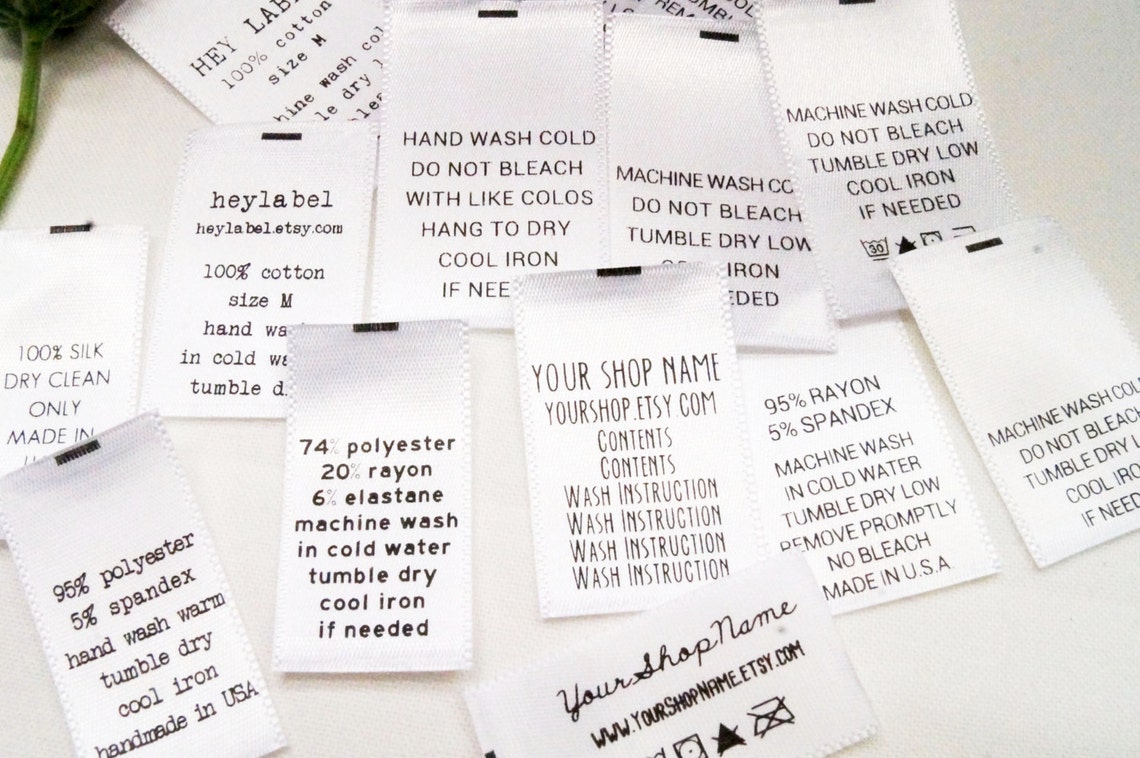 HEY LABEL
100% cotton
size M
hine wash col
le dry l
HAND WASH COLD
DO NOT BLEACH
WITH LIKE COLOS
HANG TO DRY
COOL IRON
IF NEE
MACHINE WASH CO
DO NOT BLEACH
TUMBLE DRY LOW
IRON
MACHINE WASH COLD
DO NOT BLEACH
TUMBLE DRY LOW
COOL IRON
IF NEEDED
30
heylabel
heylabel.etsy.com
100% cotton
size M
hand wa
in cold wa
tumble d
100% SILK
DRY CLEAN
ONLY
MADE IN
95% polyester
5% spandex
hand wash warm
tumble dry
cool iron
handmade in USA
74% polyester
20% rayon
6% elastane
machine wash
in cold water
tumble dry
cool iron
if needed
YOUR SHOP NAME
YOURSHOP.ETSY.COM
CONTENTS
CONTENTS
WASH INSTRUCTION
WASH INSTRUCTION
WASH INSTRUCTION
WASH INSTRUCTION
95% RAYON
5% SPANDEX
MACHINE WASH
IN COLD WATER
TUMBLE DRY LOW
REMOVE PROMPTLY
NO BLEACH
MADE IN U.S.A
MACHINE WASH COL
DO NOT BLEACH
TUMBLE DRY L
COOL IRON
IF NEEDE
Your Shop Name
WWW.YOURSHOPNAME.ETSY.COM